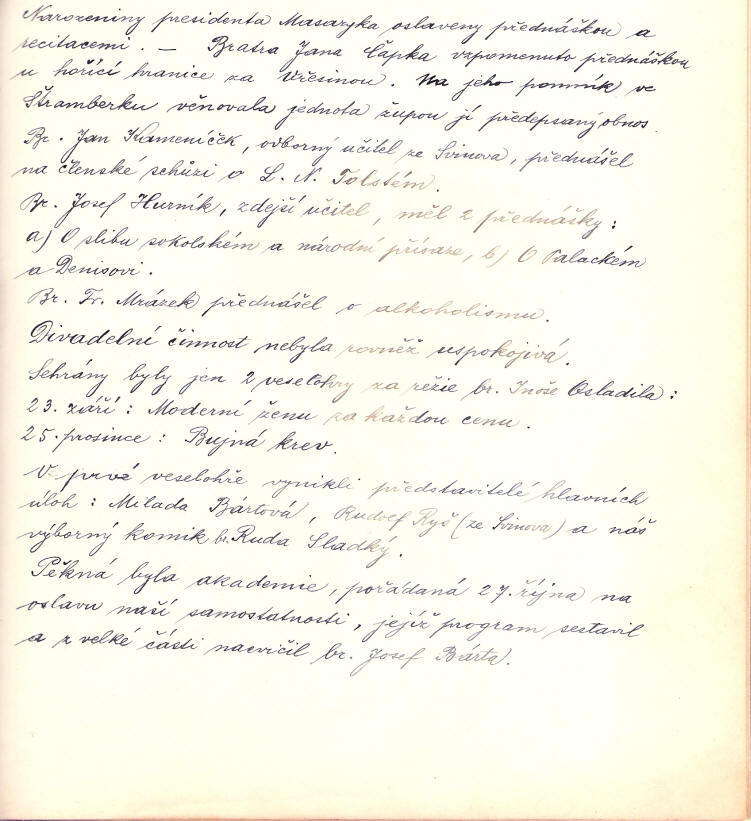 Narozeniny presidenta Masaryka oslaveny přednáškou a
recitacemi. — Bratra Jana Čapka vzpomenuto přednáškou
u hořící hranice za Vřesinou. Na jeho pomník ve
Štramberku věnovala jednota župou jí předepsaný obnos.
Br. Jan Kameníček, odborný učitel ze Svinova, přednášel
na členské schůzi o L. N. Tolstém.
Br. Josef Hurník, zdejší učitel, měl 2 přednášky:
a) O slibu sokolském a národní přísaze, b) O Palackém
a Denisovi.
Br. Fr. Mrázek přednášel o alkoholismu.
Divadelní činnost nebyla rovněž uspokojivá.
Sehrány byly jen 2 veselohry za režie br. Inoše Osladila:
23. září: Moderní ženu za každou cenu.
25. prosince: Bujná krev.
V prvé veselohře vynikli představitelé hlavních
úloh: Milada Bártová, Rudolf Ryš (ze Svinova) a náš
výborný komik br. Ruda Sladký.
Pěkná byla akademie, pořádaná 27. října na
oslavu naší samostatnosti, jejíž program sestavil
a z velké části nacvičil br. Josef Bárta.